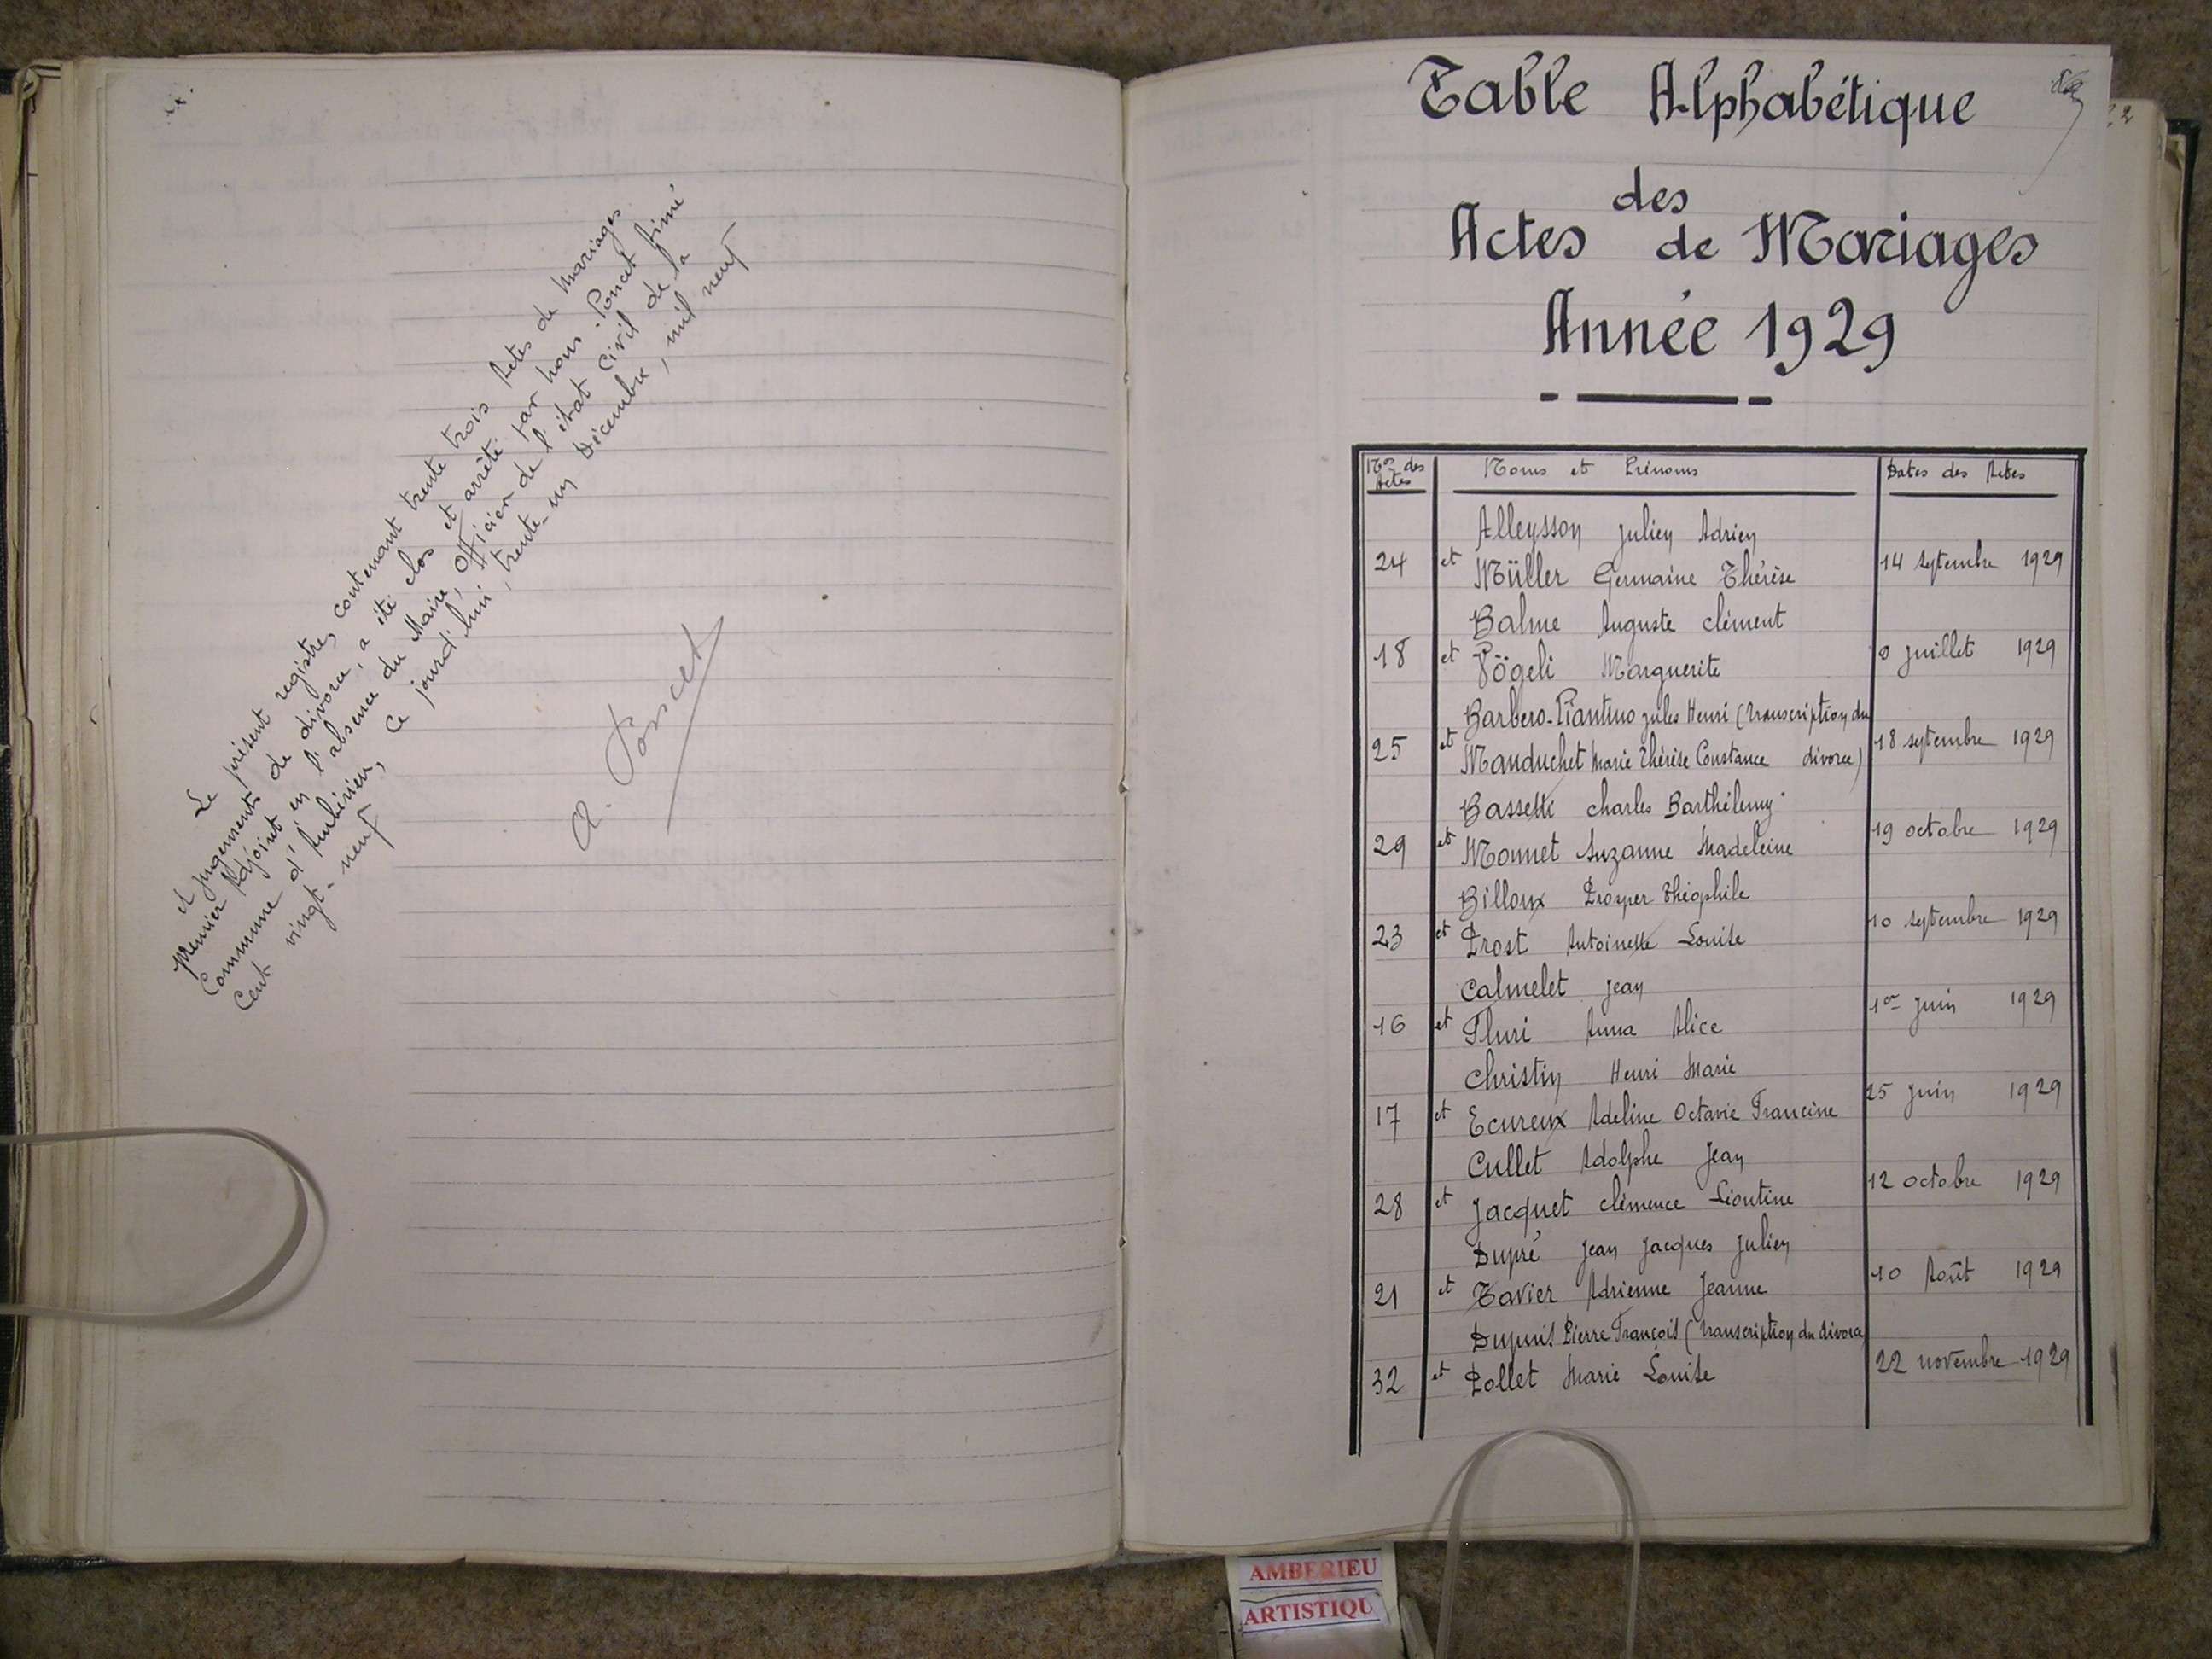 Le présent registre, contenant trente trois Actes de Mariages
et jugements de divorce, a été clos et arrêté par nous Poncet Aimé
premier Adjoint en l'absence du Maire, Officier de l'état civil de la
Commune d'Ambérieu, Ce jourd'hui, trente-un Décembre, mil neuf
Cent vingt-neuf
A. Poncet
Table Alphabétique
des
Actes de Mariages
Année 1929
Nos des Actes Noms et Prénoms Dates des Actes
Alleysson Julien Adrien
24 et Müller Germaine Thérèse 14 septembre 1929
Balme Auguste Clément
18 et Vögeli Marguerite juillet 1929
Barbero-Piantino Jules Henri (transcription du
25 et Manduchet Marie Thérèse Constance divorce) 18 septembre 1929
Bassetti Charles Barthélemy
29 et Monnet Suzanne Madeleine 19 octobre 1929
Billoux Prosper Théophile
23 et Prost Antoinette Louise 10 septembre 1929
Calmelet Jean
16 et Fluri Anna Alice 1er juin 1929
Christin Henri Marie
17 et Ecureux Adeline Octavie Francine 25 juin 1929
Cullet Adolphe Jean
28 et Jacquet Clémence Léontine 12 octobre 1929
Dupré Jean Jacques Julien
21 et Tavier Adrienne Jeanne 10 Août 1929
Dupuis Pierre François (transcription du divorce)
32 et Pollet Marie Louise 22 novembre 1929
AMBERIEU
ARTISTIQU